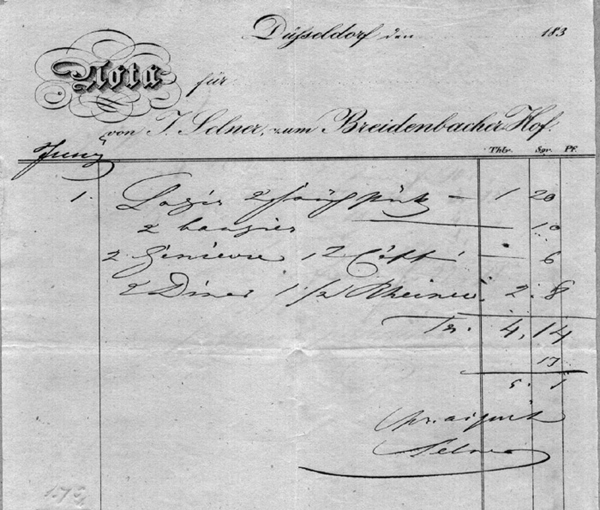 Düsseldorf den 183
Nota für
von J. Selner, zum Breidenbacher Hof.
Juny
Thlr. Sgr. Pf.
1. Logis 2 — 1 20
2 bougies — 10
2 Genievre 1 2 Caff — 6
2 Diner 1 1/2 Rheinwein 2. 8
Tr. 4, 14
17
5. 1
Acquit
Selner